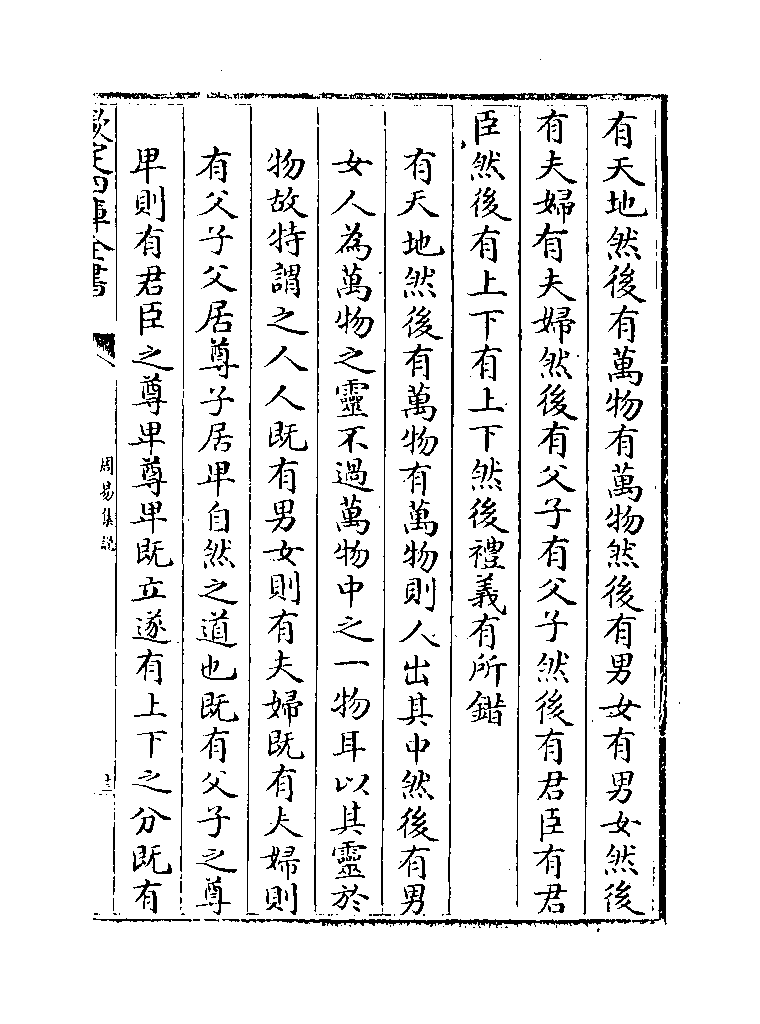 有天地然後有萬物有萬物然後有男女有男女然後
有夫婦有夫婦然後有父子有父子然後有君臣有君
臣然後有上下有上下然後禮義有所錯
有天地然後有萬物有萬物則人出其中然後有男
女人為萬物之靈不過萬物中之一物耳以其靈於
物故特謂之人人既有男女則有夫婦既有夫婦則
有父子父居尊子居卑自然之道也既有父子之尊
卑則有君臣之尊卑尊卑既立遂有上下之分既有
欽定四庫全書
周易集說
十三